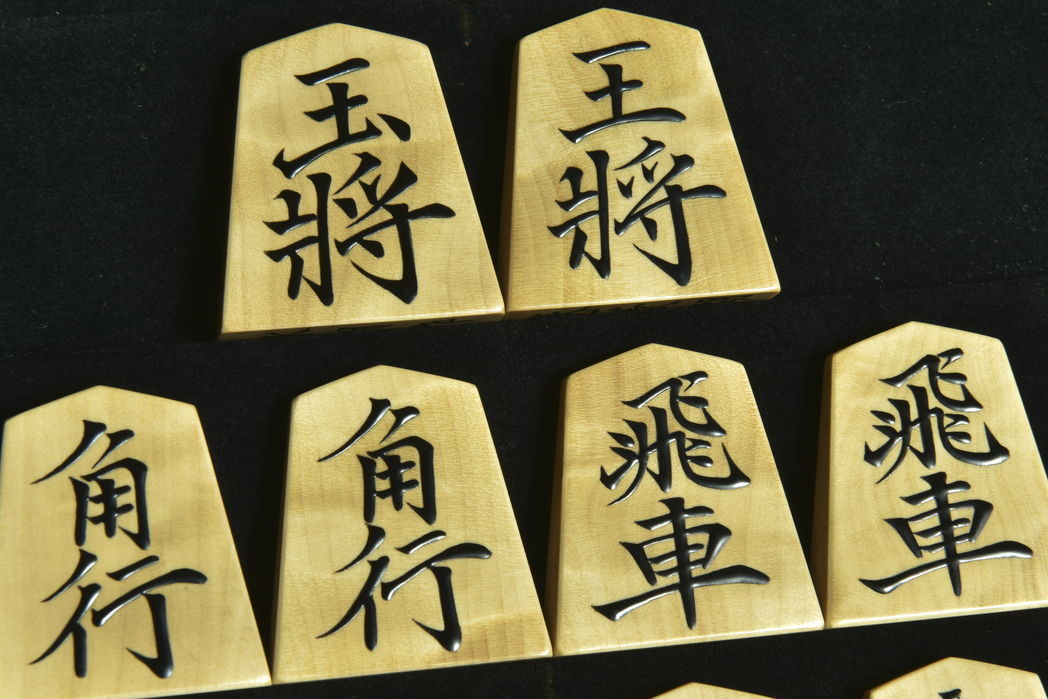 玉將
王將
角行
角行
飛車
飛車